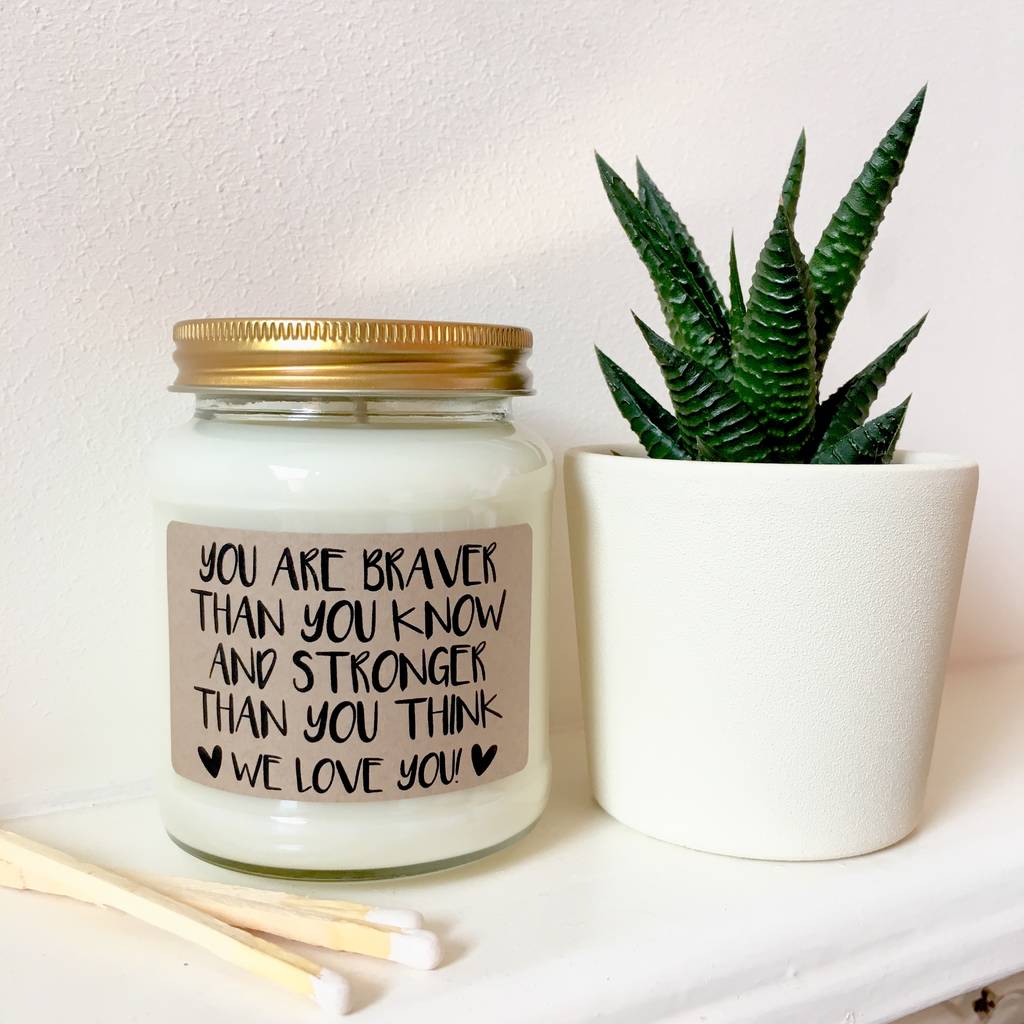 YOU ARE BRAVER
THAN YOU KNOW
AND STRONGER
THAN YOU THINK
♥ WE LOVE YOU! ♥